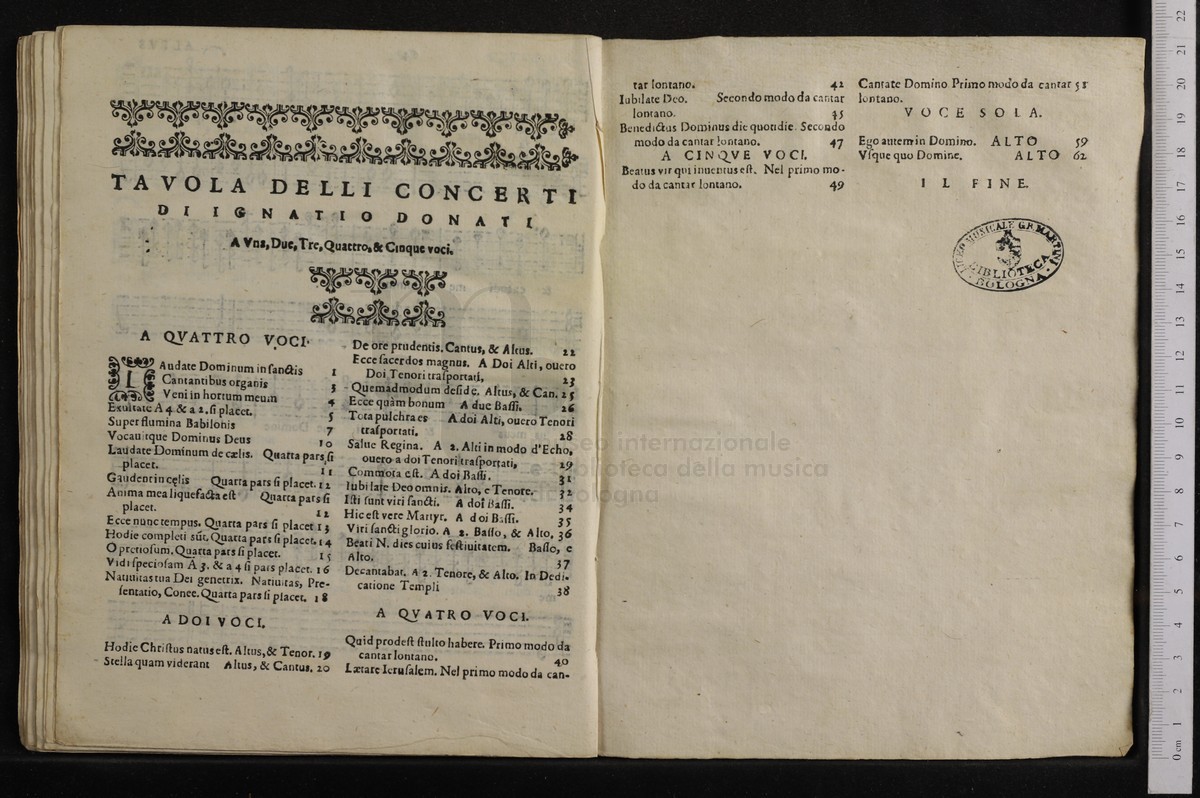 TAVOLA DELLI CONCERTI
DI IGNATIO DONATI
A Vna, Due, Tre, Quattro, & Cinque voci.
A QVATTRO VOCI.
LAudate Dominum in sanctis 1
Cantantibus organis 3
Veni in hortum meum 4
Exultate A 4 & a 2. si placet. 5
Super flumina Babilonis 7
Vocauitque Dominus Deus 10
Laudate Dominum de cælis. Quarta pars si
placet. 11
Gaudent in cęlis Quarta pars si placet. 12
Anima mea liquefacta est Quarta pars si
placet. 12
Ecce nunc tempus. Quarta pars si placet 13
Hodie completi sūt. Quarta pars si placet. 14
O pretiosum. Quarta pars si placet. 15
Vidi speciosam A 3. & a 4 si pars placet. 16
Natiuitas tua Dei genetrix. Natiuitas, Pre-
sentatio, Conce. Quarta pars si placet. 18
A DOI VOCI.
Hodie Christus natus est. Altus, & Tenor. 19
Stella quam viderant Altus, & Cantus. 20
De ore prudentis. Cantus, & Altus. 22
Ecce sacerdos magnus. A Doi Alti, ouero
Doi Tenori trasportati, 23
Quemadmodum desidę. Altus, & Can. 25
Ecce quàm bonum A due Bassi. 26
Tota pulchra es A doi Alti, ouero Tenori
trasportati. 28
Salue Regina. A 2. Alti in modo d'Echo,
ouero a doi Tenori trasportati, 29
Commota est. A doi Bassi. 31
Iubilate Deo omnis. Alto, e Tenore. 32
Isti sunt viri sancti. A doi Bassi. 34
Hic est vere Martyr. A doi Bassi. 35
Viri sancti glorio. A 2. Basso, & Alto, 36
Beati N. dies cuius festiuitatem. Basso, e
Alto. 37
Decantabat. A 2. Tenore, & Alto. In Dedi-
catione Templi 38
A QVATRO VOCI.
Quid prodest stulto habere. Primo modo da
cantar lontano. 40
Lætare Ierusalem. Nel primo modo da can-
tar lontano. 42
Iubilate Deo. Secondo modo da cantar
lontano. 45
Benedictus Dominus die quotidie. Secondo
modo da cantar lontano. 47
A CINQVE VOCI.
Beatus vir qui inuentus est. Nel primo mo-
do da cantar lontano. 49
Cantate Domino Primo modo da cantar 51
lontano.
VOCE SOLA.
Ego autem in Domino. ALTO 59
Vsque quo Domine. ALTO 62
IL FINE.
LICEO MUSICALE G.B. MARTINI
BIBLIOTECA
BOLOGNA
museo internazionale
e biblioteca della musica
di bologna
0 cm 1 2 3 4 5 6 7 8 9 10 11 12 13 14 15 16 17 18 19 20 21 22